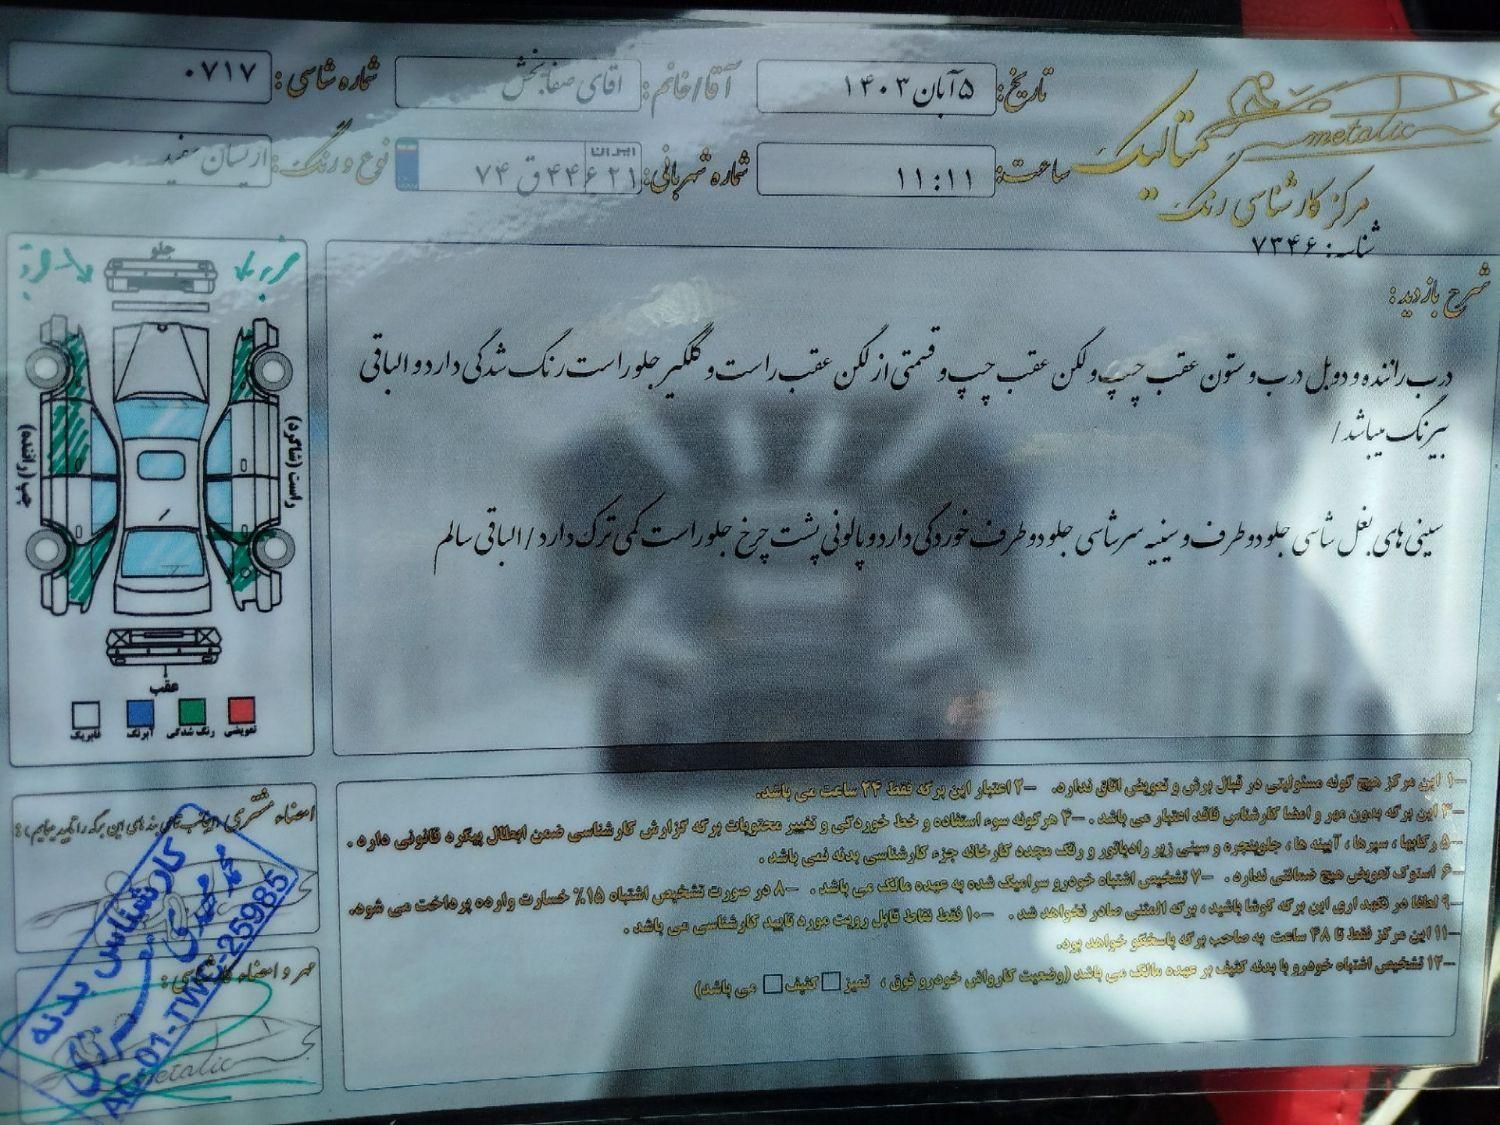 metalic
متالیک
مرکز کارشناسی رنگ
شناسه: ۷۳۴۶
تاریخ: ۵ آبان ۱۴۰۳
آقا/خانم: اقای صفابخش
شماره شاسی: ۰۷۱۷
ساعت: ۱۱:۱۱
شماره شهربانی: ایران ۲۱ ۴۴۶ ق ۷۴
نوع و رنگ: اریسان سفید
شرح بازدید:
درب راننده و دوبل درب و ستون عقب چپ و لگن عقب چپ و قسمتی از لگن عقب راست و گلگیر جلو راست رنگ شدگی دارد و الباقی
بیرنگ میباشد/
سینی های بغل شاسی جلو دو طرف و سینیه سرشاسی جلو دو طرف خوردگی دارد و پالونی پشت چرخ جلو راست کمی ترک دارد/ الباقی سالم
جلو
راست (شاگرد)
چپ (راننده)
عقب
تعویضی
رنگ شدگی
آبرنگ
فابریک
۱- این مرکز هیچ گونه مسئولیتی در قبال برش و تعویض اتاق ندارد. ۲- اعتبار این برگه فقط ۲۴ ساعت می باشد.
۳- این برگه بدون مهر و امضا کارشناس فاقد اعتبار می باشد. ۴- هرگونه سوء استفاده و خط خوردگی و تغییر محتویات برگه گزارش کارشناسی ضمن ابطال پیگرد قانونی دارد.
۵- رکابها، سپرها، آیینه ها، جلوپنجره و سینی زیر رادیاتور و رنگ مجدد کارخانه جزء کارشناسی بدنه نمی باشد.
۶- استوک تعویض هیچ ضمانتی ندارد. ۷- تشخیص اشتباه خودرو سرامیک شده به عهده مالک می باشد. ۸- در صورت تشخیص اشتباه ۱۵% خسارت وارده پرداخت می شود.
۹- لطفا در نگهداری این برگه کوشا باشید، برگه المثنی صادر نخواهد شد. ۱۰- فقط نقاط قابل رویت مورد تایید کارشناسی می باشد.
۱۱- این مرکز فقط تا ۴۸ ساعت به صاحب برگه پاسخگو خواهد بود.
۱۲- تشخیص اشتباه خودرو با بدنه کثیف بر عهده مالک می باشد (وضعیت کارواش خودرو فوق، تمیز کثیف می باشد)
امضاء مشتری
مهر و امضاء کارشناسی:
کارشناس بدنه
metalic